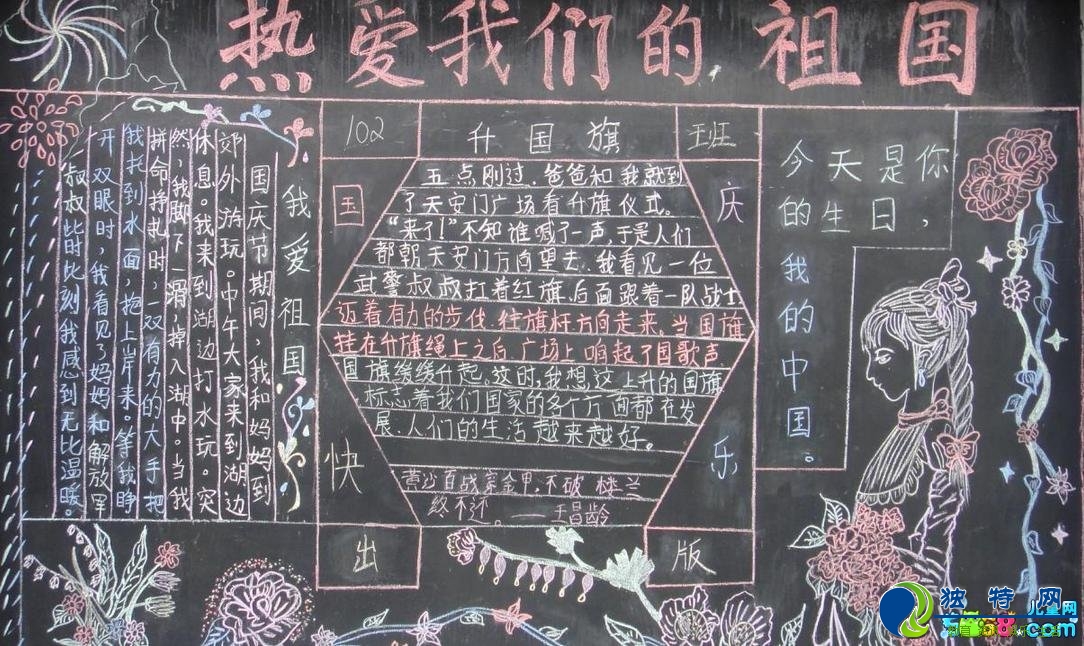 热爱我们的祖国
我爱祖国
国庆节期间，我和妈妈到
郊外游玩。中午大家来到湖边
休息。我来到湖边打水玩。突
然，我脚下一滑，掉入湖中。当我
拼命挣扎时，一双有力的大手把
我托到水面，抱上岸来。等我睁
开双眼时，我看见了妈妈和解放军
叔叔此时此刻我感到无比温暖。
102 升国旗 班
国庆
五点刚过，爸爸和我就到
了天安门广场看升旗仪式。
“来了！”不知谁喊了一声，于是人们
都朝天安门方向望去，我看见一位
武警叔叔扛着红旗，后面跟着一队战士
迈着有力的步伐，往旗杆方向走来。当国旗
挂在升旗绳上之后，广场上响起了国歌声
国旗缓缓升起。这时，我想，这上升的国旗
标志着我们国家的各个方面都在发
展，人们的生活越来越好。
快乐
黄沙百战穿金甲，不破楼兰
终不还。——王昌龄
出版
今天是你
的生日，
我的中国。
独特网
儿童网
.com